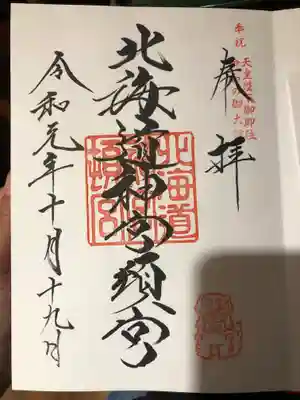 奉祝 天皇陛下御即位
奉拝
北海道神宮頓宮
北海道
神宮
頓宮
令和元年十月十九日